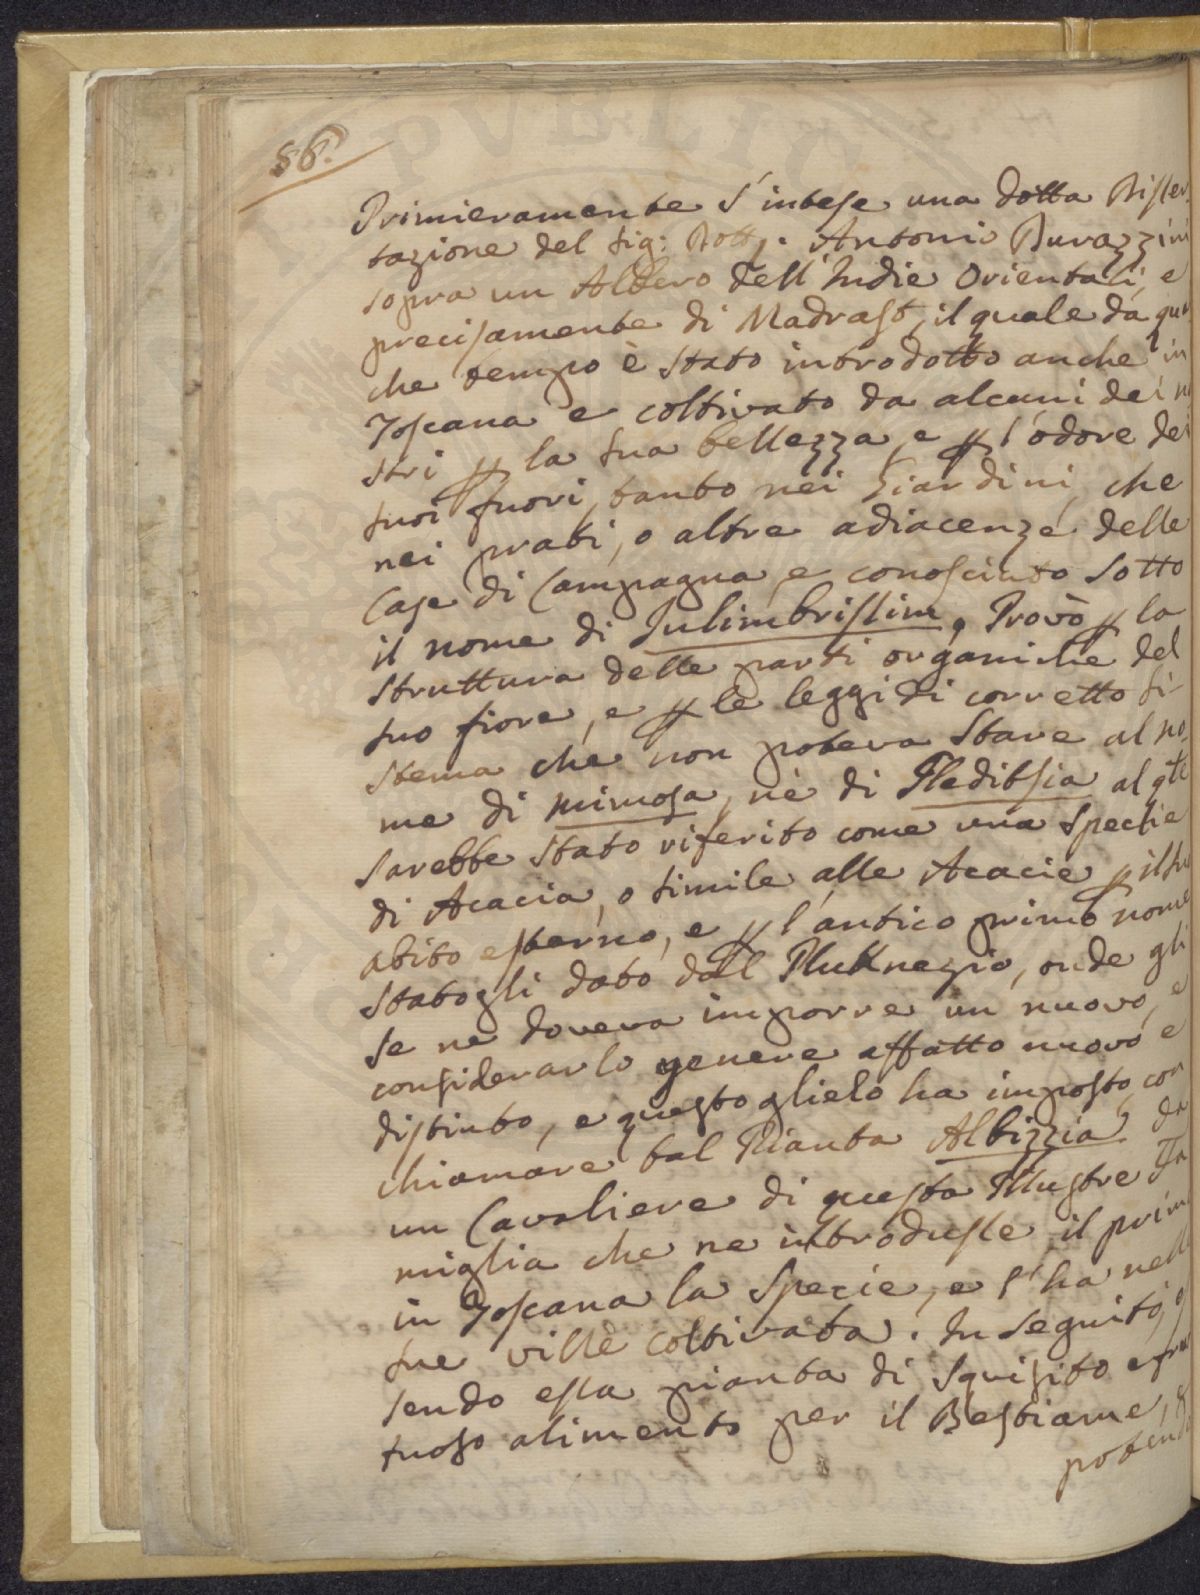 86.
Primieramente s'intese una dotta Disser-
tazione del Sig: Dott. Antonio Durazzini
sopra un Albero dell'Indie Orientali, e
precisamente di Madrast, il quale da qual
che tempo è stato introdotto anche in
Toscana e coltivato da alcuni dei no
stri p la sua bellezza, e p l'odore dei
suoi fuori, tanto nei Giardini, che
nei prati, o altre adiacenze delle
Case di Campagna, e conosciuto sotto
il nome di Julimbrissim. Provò p la
struttura delle parti organiche del
suo fiore, e p le leggi di corretto Si-
stema che non poteva stare al no-
me di mimosa, nè di Gleditsia al qte
sarebbe stato riferito come una specie
di Acacia, o simile alle Acacie p il su
abito esterno, e p l'antico primo nome
statogli dato dal Pluknezio, onde gli
se ne doveva imporre un nuovo, e
considerarlo genere affatto nuovo e
distinto, e questo glielo ha imposto con
chiamare tal Pianta Albizzia da
un Cavaliere di questa Illustre Fa
miglia che ne introdusse il prim
in Toscana la Specie, e l'ha nelle
sue ville coltivata. In seguito, es
sendo essa pianta di squisito e fru
tuoso alimento per il Bestiame,
potendo